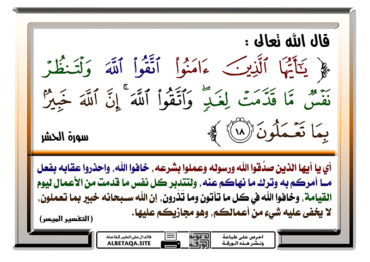 قال الله تعالى :
﴿ يَٰٓأَيُّهَا ٱلَّذِينَ ءَامَنُوا۟ ٱتَّقُوا۟ ٱللَّهَ وَلْتَنظُرْ
نَفْسٌ مَّا قَدَّمَتْ لِغَدٍ ۖ وَٱتَّقُوا۟ ٱللَّهَ ۚ إِنَّ ٱللَّهَ خَبِيرٌۢ
بِمَا تَعْمَلُونَ ١٨ ﴾
سورة الحشر
أي يا أيها الذين صدَّقوا الله ورسوله وعملوا بشرعه, خافوا الله, واحذروا عقابه بفعل
ما أمركم به وترك ما نهاكم عنه, ولتتدبر كل نفس ما قدمت من الأعمال ليوم
القيامة, وخافوا الله في كل ما تأتون وما تذرون, إن الله سبحانه خبير بما تعملون,
لا يخفى عليه شيء من أعمالكم, وهو مجازيكم عليها.
( التفسير الميسر )
احرص على طباعة
ونشر هذه الورقة
ALBETAQA.SITE